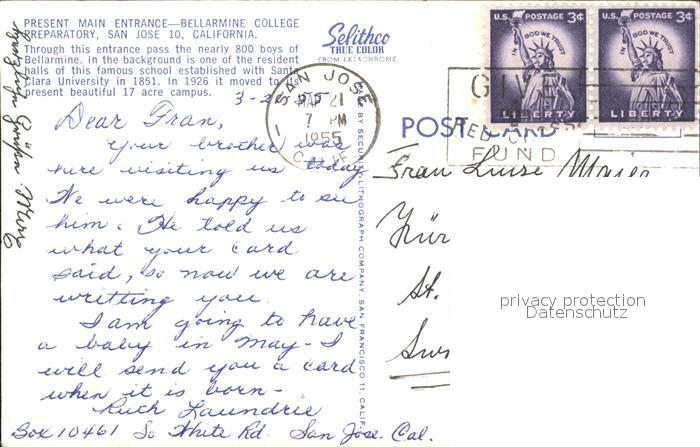 PRESENT MAIN ENTRANCE—BELLARMINE COLLEGE
PREPARATORY, SAN JOSE 10, CALIFORNIA.
Through this entrance pass the nearly 800 boys of
Bellarmine. In the background is one of the resident
halls of this famous school established with Santa
Clara University in 1851. In 1926 it moved to its
present beautiful 17 acre campus.
Selithco
TRUE COLOR
FROM EKTACHROME
3-20-55
Dear Fran,
Your brother was
here visiting us today
We were happy to see
him. He told us
what your card
said, so now we are
writting you.
I am going to have
a baby in May - I
will send you a card
when it is born -
Ruth Laundrie
Box 10461 So White Rd. San Jose. Cal.
SAN JOSE
MAR 21
7 PM
1955
CALIF.
BY SECURITY LITHOGRAPH COMPANY, SAN FRANCISCO 11, CALIF.
U.S. POSTAGE 3¢
IN GOD WE TRUST
LIBERTY
U.S. POSTAGE 3¢
IN GOD WE TRUST
LIBERTY
POST CARD
GIVE
RED CROSS
FUND
Frau Luise
St.
privacy protection
Datenschutz